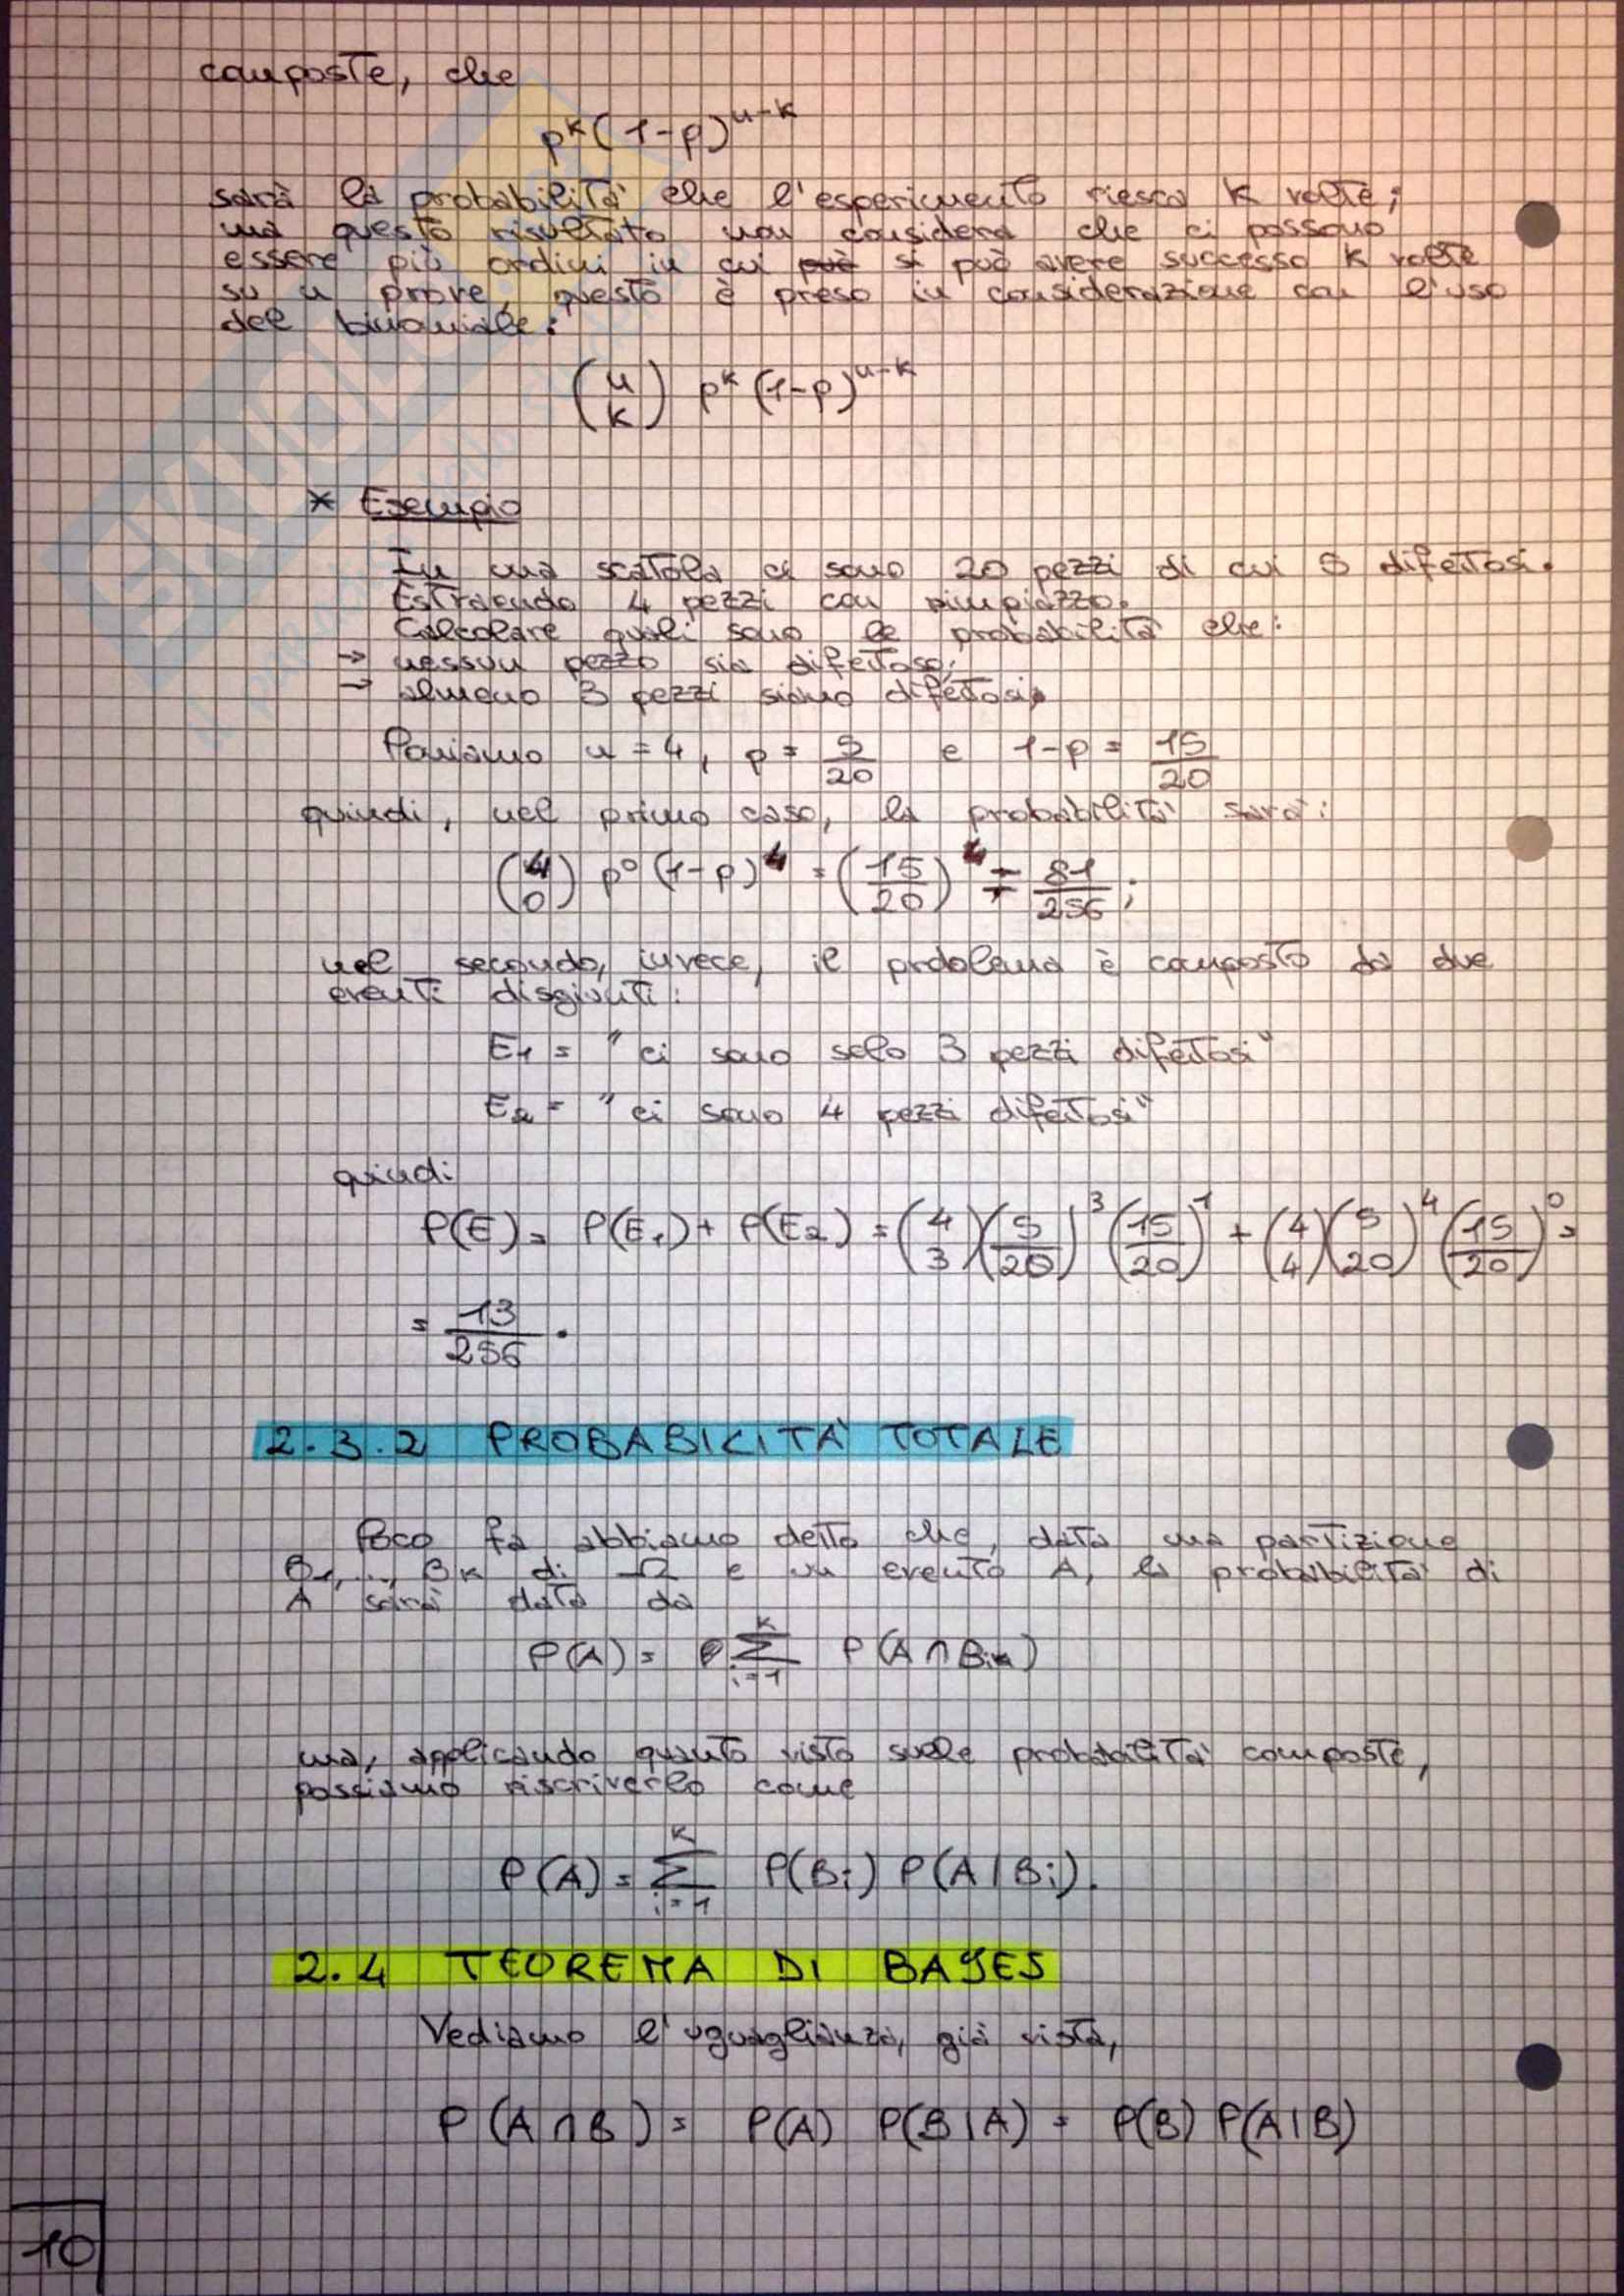 composte, che
p^k (1-p)^{n-k}
sarà la probabilità che l'esperimento riesca k volte;
ma questo risultato non considera che ci possono
essere più ordini in cui può si può avere successo k volte
su n prove, questo è preso in considerazione con l'uso
del binomiale:
(n k) p^k (1-p)^{n-k}
* Esempio
In una scatola ci sono 20 pezzi di cui 5 difettosi.
Estraendo 4 pezzi con rimpiazzo.
Calcolare quali sono le probabilità che:
→ nessun pezzo sia difettoso;
→ almeno 3 pezzi siano difettosi.
Poniamo n = 4, p = 5/20 e 1-p = 15/20
quindi, nel primo caso, la probabilità sarà:
(4 0) p^0 (1-p)^4 = (15/20)^4 = 81/256;
nel secondo, invece, il problema è composto da due
eventi disgiunti:
E1 = "ci sono solo 3 pezzi difettosi"
E2 = "ci sono 4 pezzi difettosi"
quindi
P(E) = P(E1) + P(E2) = (4 3)(5/20)^3 (15/20)^1 + (4 4)(5 20)^4 (15/20)^0 =
= 13/256.
2.3.2 PROBABILITÀ TOTALE
Poco fa abbiamo detto che, data una partizione
B1, ..., Bk di Ω e un evento A, la probabilità di
A sarà data da
P(A) = ∑_{i=1}^{k} P(A ∩ Bi)
ma, applicando quanto visto sulle probabilità composte,
possiamo riscriverlo come
P(A) = ∑_{i=1}^{k} P(Bi) P(A|Bi).
2.4 TEOREMA DI BAYES
Vediamo l'uguaglianza, già vista,
P(A ∩ B) = P(A) P(B|A) = P(B) P(A|B)
10